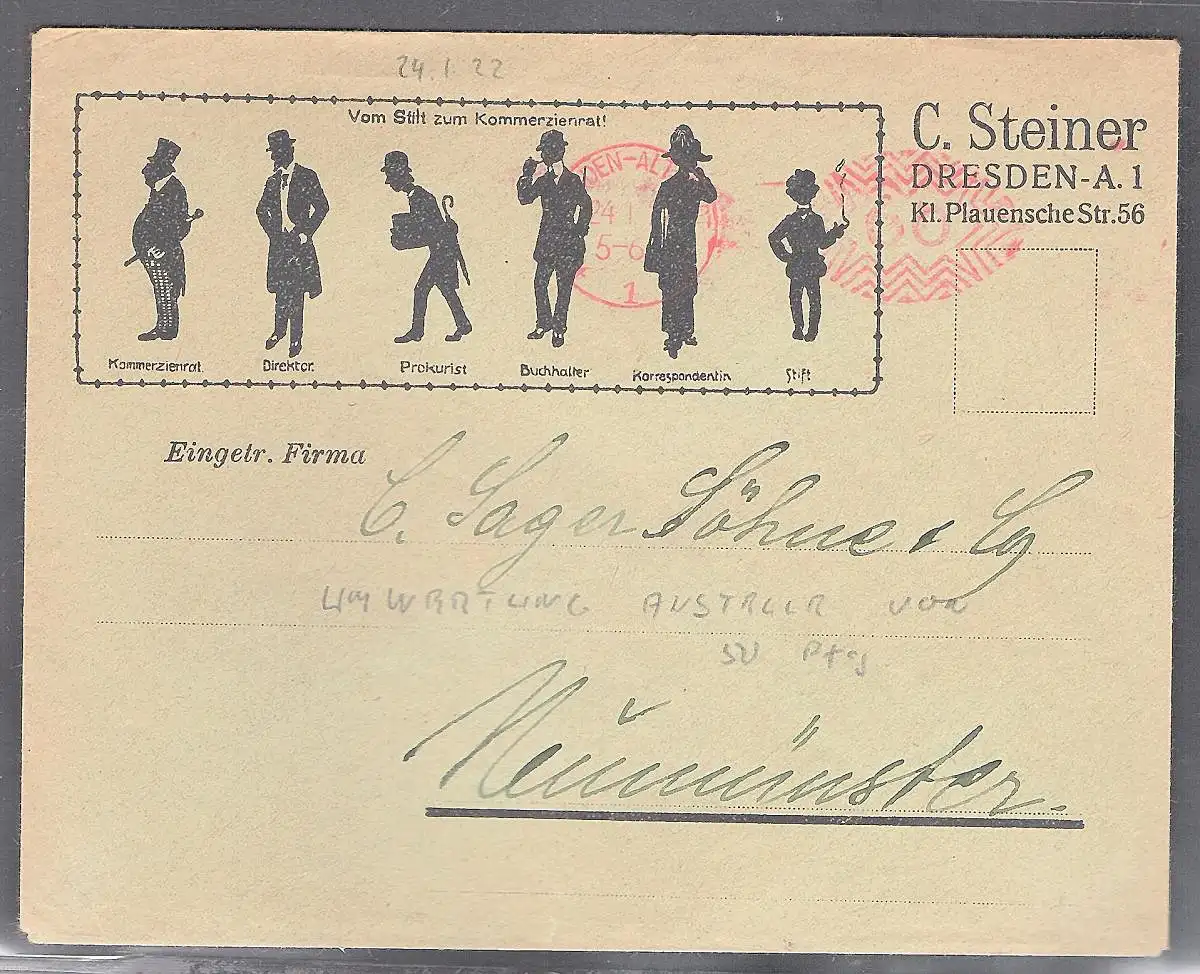 24.1.22
Vom Stift zum Kommerzienrat!
Kommerzienrat.
Direktor.
Prokurist
Buchhalter
Korrespondentin
Stift
C. Steiner
DRESDEN-A. 1
Kl. Plauensche Str. 56
DEN-ALT
24 1
5-6
1
60
Eingetr. Firma
C. Sager Söhne & Co
von
50 Pfg
Neumünster.